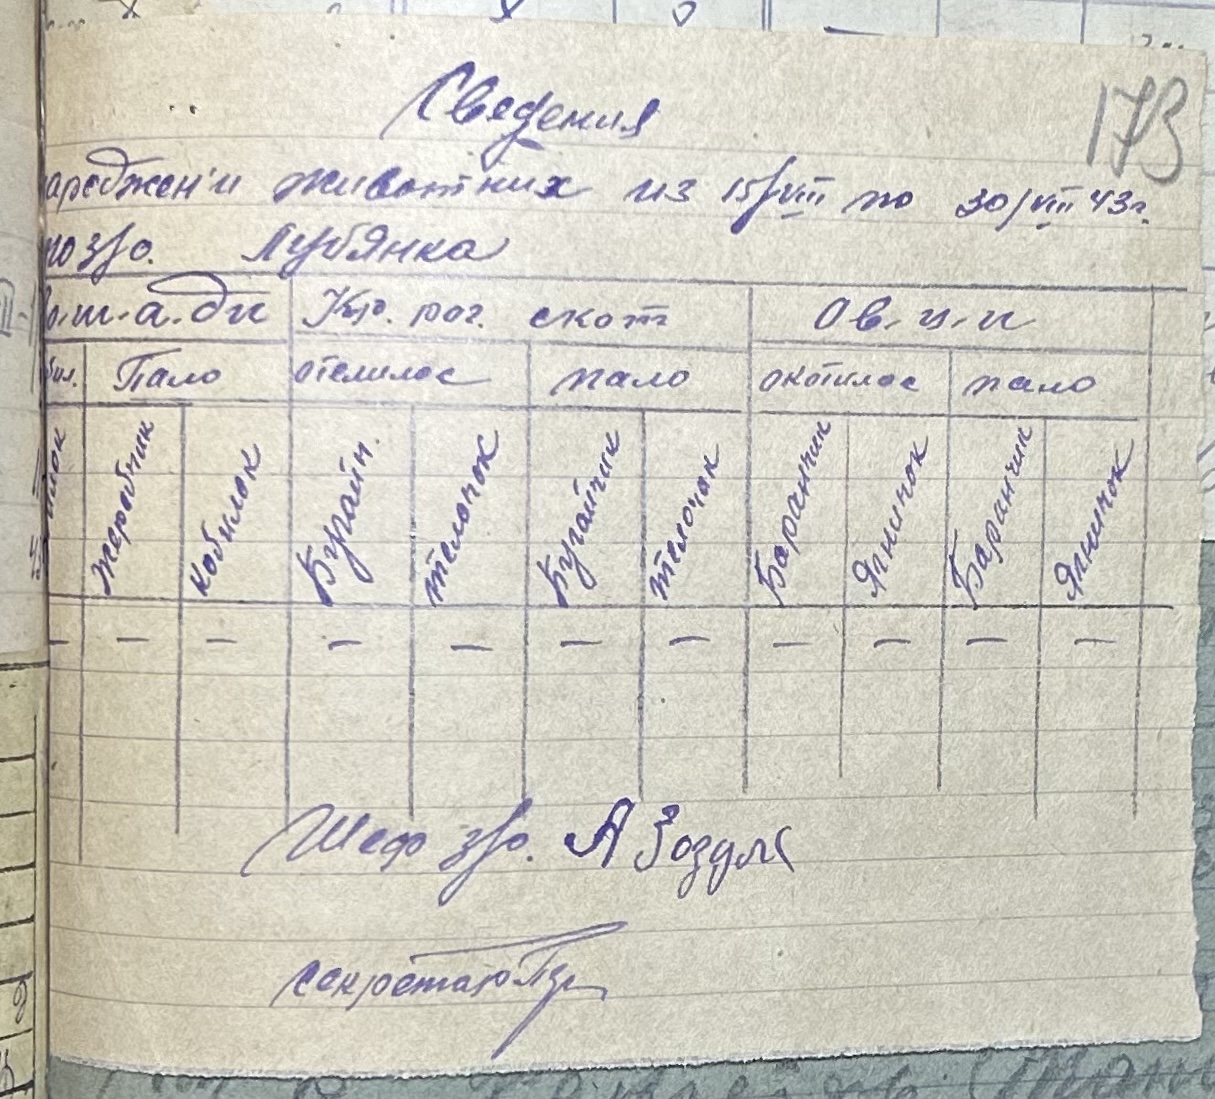 173
Сведения
ареджени животних из 15/VIII по 30/VIII 43г.
по з/о. Лубянка
ш.а.ди Кр. рог. скот Ов.ц.и
Пало отелилос пало окотилос пало
жеребчик кобилок Бугайч. телочок Бугайчик телочок Баранчик Ягничок Баранчик Ягничок
— — — — — — — — — — —
Шеф з/о. А Зозуля
секретарь